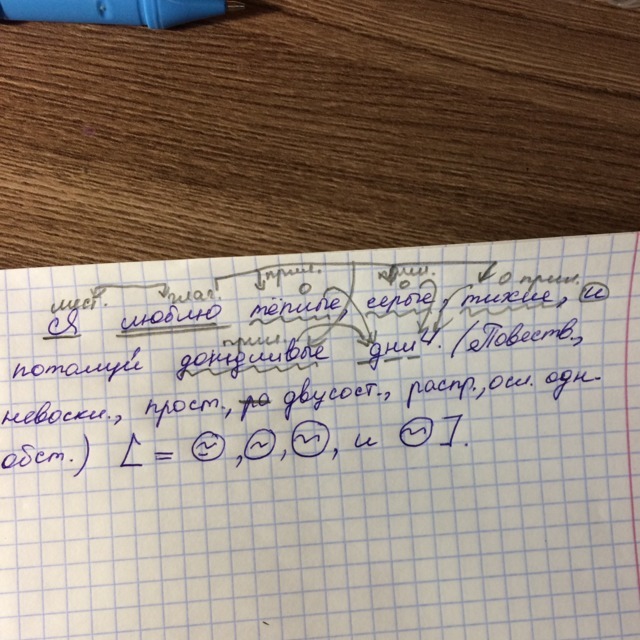 мест. глаг. прил. прил. прил.
Я люблю тёплые, серые, тихие, и
прил.
потомуй дождливые дни⁴. (Повеств.,
невоскл., прост., двусост., распр., осл. одн.
обст.) [ = ~, ~, ~, и ~ ].